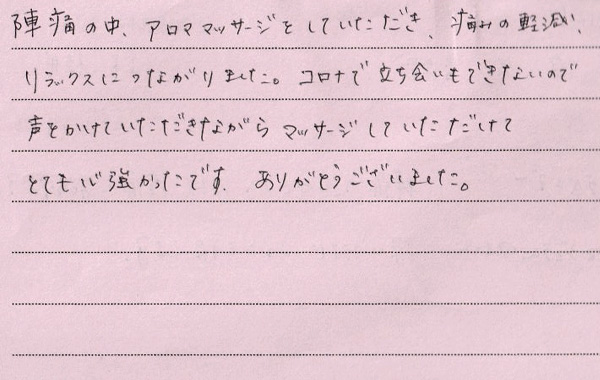 陣痛の中、アロママッサージをしていただき、痛みの軽減、
リラックスにつながりました。コロナで立ち会いもできないので
声をかけていただきながらマッサージしていただけて
とても心強かったです。ありがとうございました。